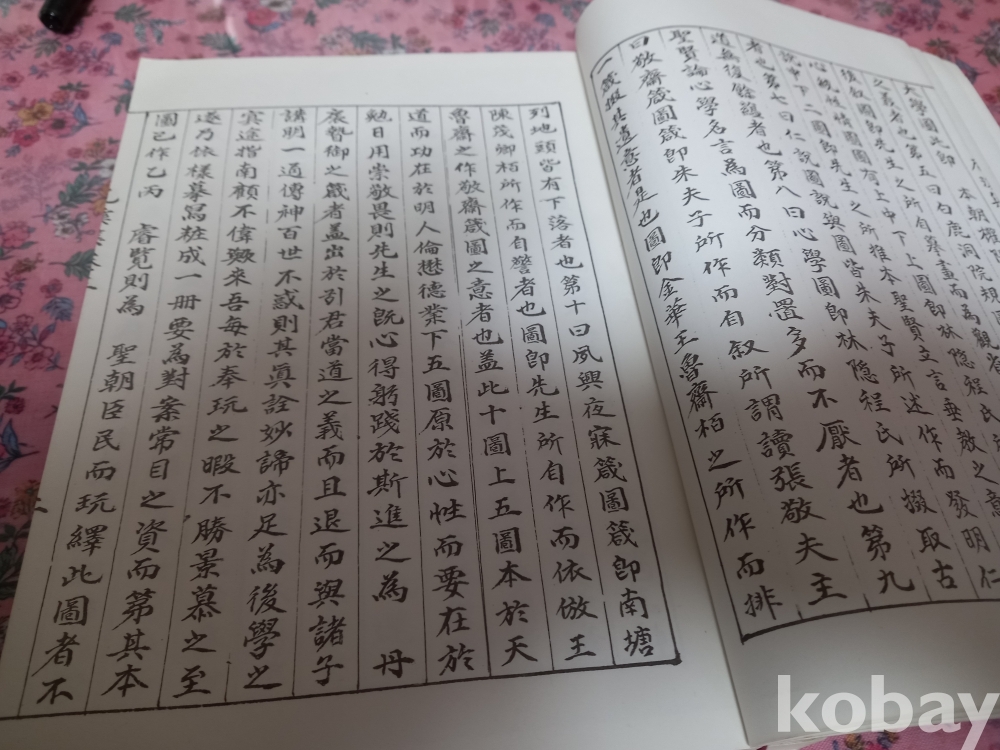 大學圖此即
本朝
之義者也第五曰白鹿洞院規
後叙圖即先生之所推本聖賢立言垂教之意
心統性情圖圖有上中下上圖即林隱程氏
說中下二圖即先生之所
者也第七曰仁說圖說與圖皆朱夫子所述作而發明仁
道無復餘蘊者也第八曰心學圖即林隱程氏所掇取古
聖賢論心學名言為圖而分類對置多而不厭者也第九
曰敬齋箴圖箴即朱夫子所作而自叙所謂讀張敬夫主
一箴掇其遺意者是也圖即金華王魯齋栢之所作而排
列地頭皆有下落者也第十曰夙興夜寐箴圖箴即南塘
陳茂卿栢所作而自警者也圖即先生所自作而依倣王
魯齋之作敬齋箴圖之意者也盖此十圖上五圖本於天
道而功在於明人倫懋德業下五圖原於心性而要在於
勉日用崇敬畏則先生之旣心得躬踐於斯進之為 丹
扆暬御之箴者盖出於引君當道之義而且退而與諸子
講明一通傳神百世不惑則其眞詮妙諦亦足為後學之
冥途指南顧不偉歟來吾每於奉玩之暇不勝景慕之至
遂乃依樣摹寫粧成一册要為對案常目之資而第其本
圖已作乙丙 睿覧則為 聖朝臣民而玩繹此圖者不
kobay